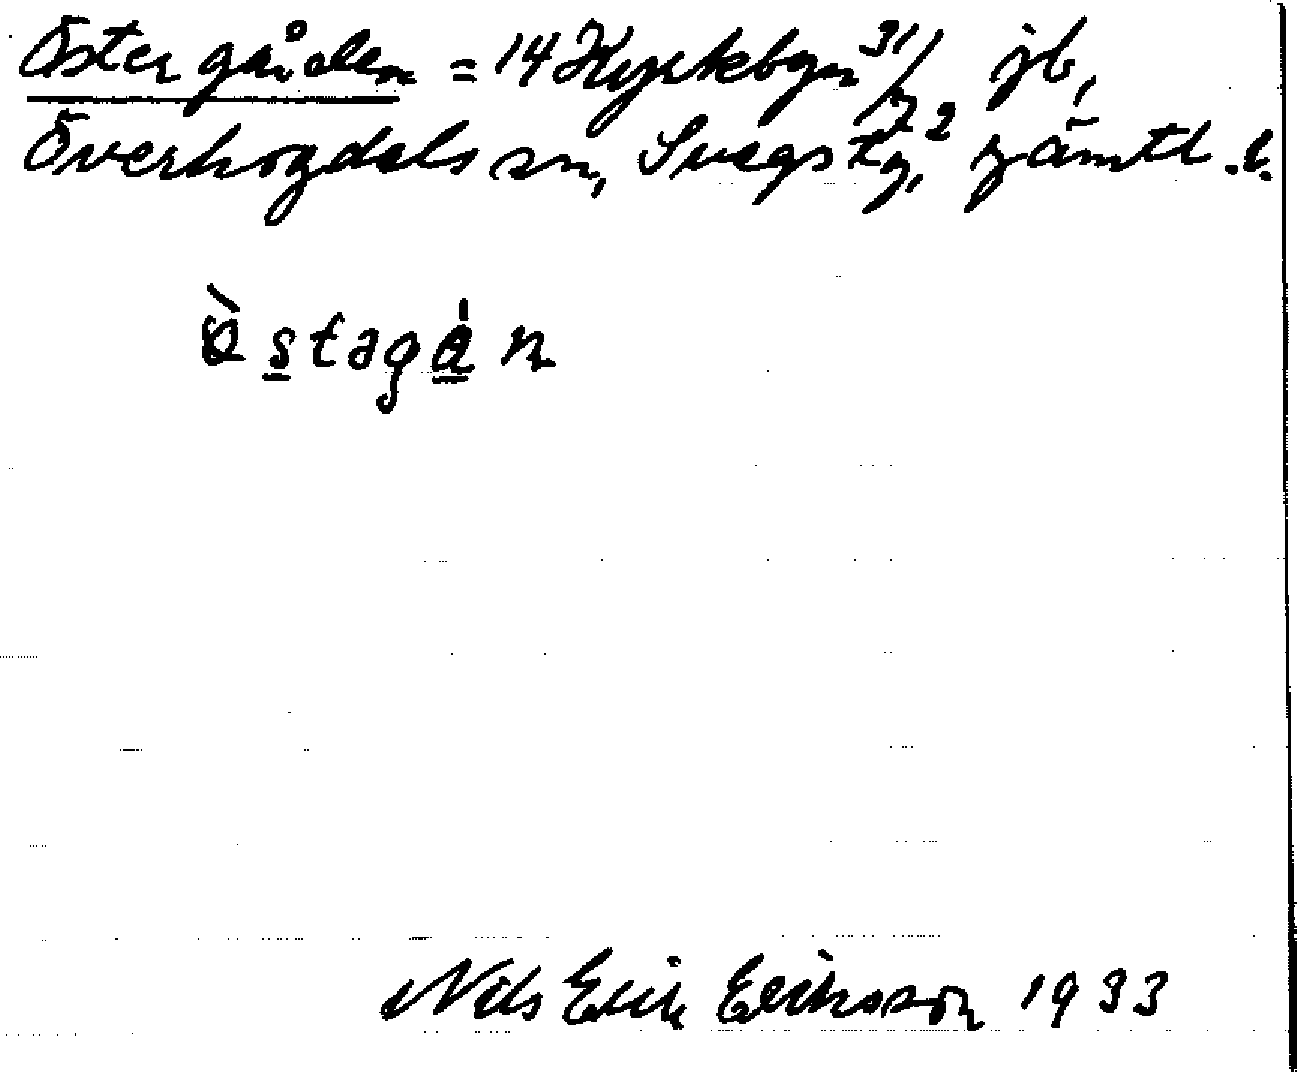 Östergården = 14 Kyrkbyn 3¹/72 jb,
Överhogdals sn, Svegs tg, Jämtl. l.
östagån
Nils Erik Eriksson 1933